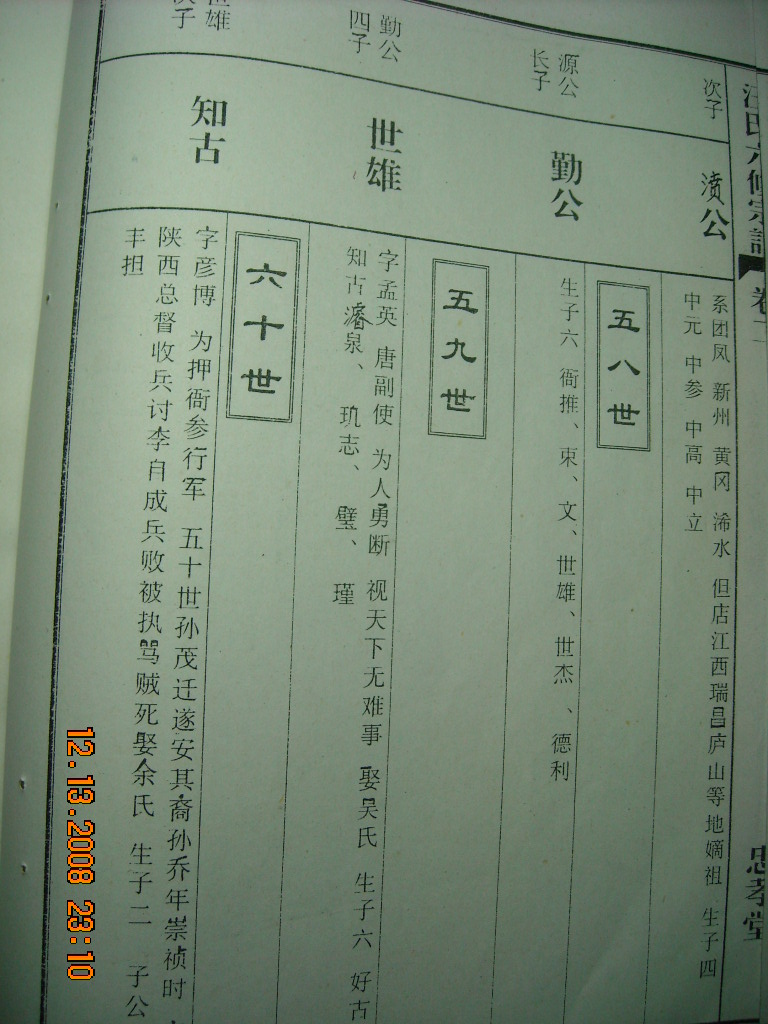 汪氏六修宗譜 卷一
忠孝堂
次子
濆公
系团凤 新州 黄冈 浠水 但店江西瑞昌庐山等地嫡祖 生子四
中元 中参 中高 中立
五八世
源公
长子
勤公
生子六 衙推、朿、文、世雄、世杰、德利
五九世
勤公
四子
世雄
字孟英 唐副使 为人勇断 视天下无难事 娶吴氏 生子六 好古
知古 濬泉、玑志、璧、瑾
六十世
世雄
次子
知古
字彦博 为押衙参行军 五十世孙茂迁遂安其裔孙乔年崇祯时
陕西总督收兵讨李自成兵败被执骂贼死娶余氏 生子二 子公
丰担
12.13.2008 23:10